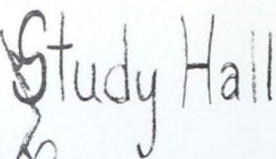 Study Hall